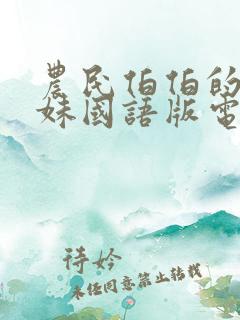 農民伯伯的
妹國語版電
待妗
未经同意禁止转载